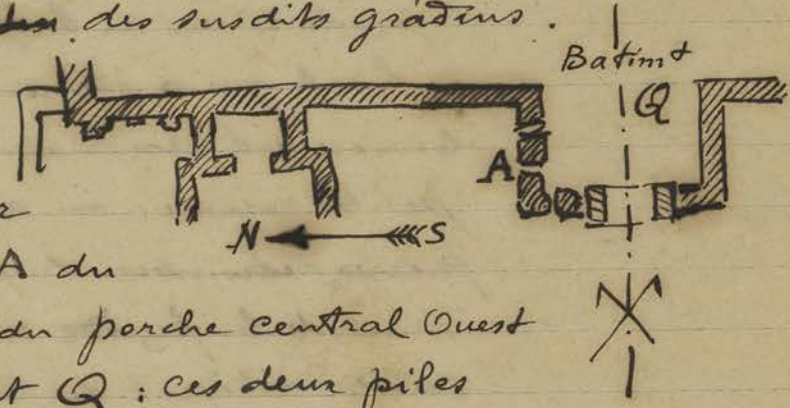 des susdits gradins.
Batimt
Q
A
N S
A du
du porche central Ouest
t Q : ces deux piles